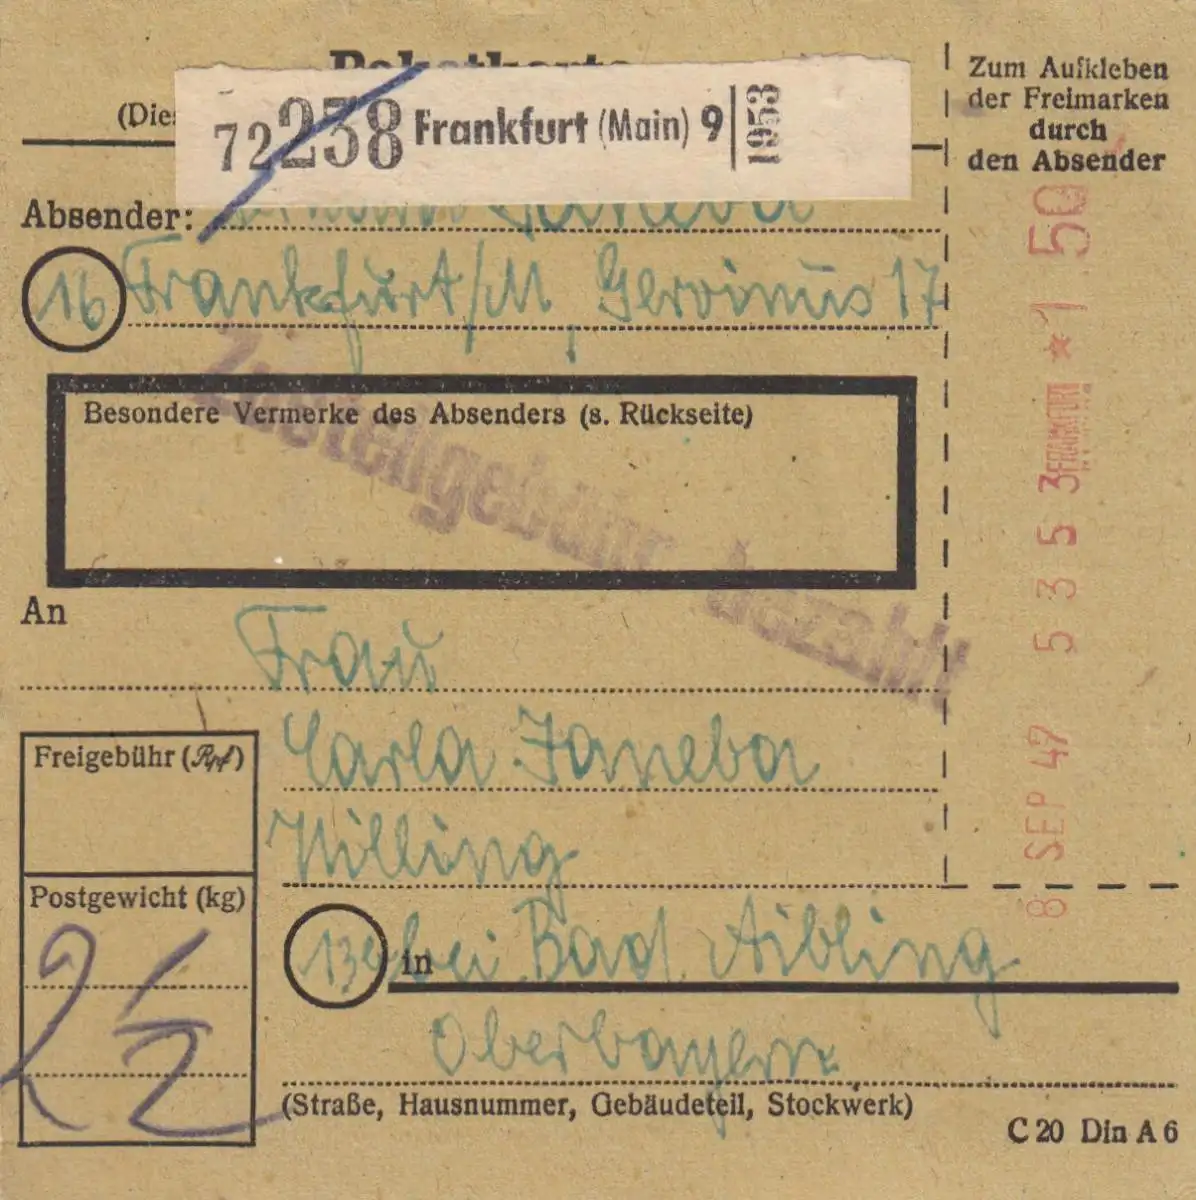 Paketkarte
(Dies
72 238 Frankfurt (Main) 9 1953
Absender: Janeba
16 Frankfurt/M, Gervinus 17
Besondere Vermerke des Absenders (s. Rückseite)
Zustellgebühr bezahlt
An
Frau
Carla Janeba
Willing
13b in bei Bad Aibling
Oberbayern
(Straße, Hausnummer, Gebäudeteil, Stockwerk)
Freigebühr (Rpf)
Postgewicht (kg)
2 1/2
Zum Aufkleben
der Freimarken
durch
den Absender
8 SEP 47 5353 FRANKFURT * 1 50
C 20 Din A 6